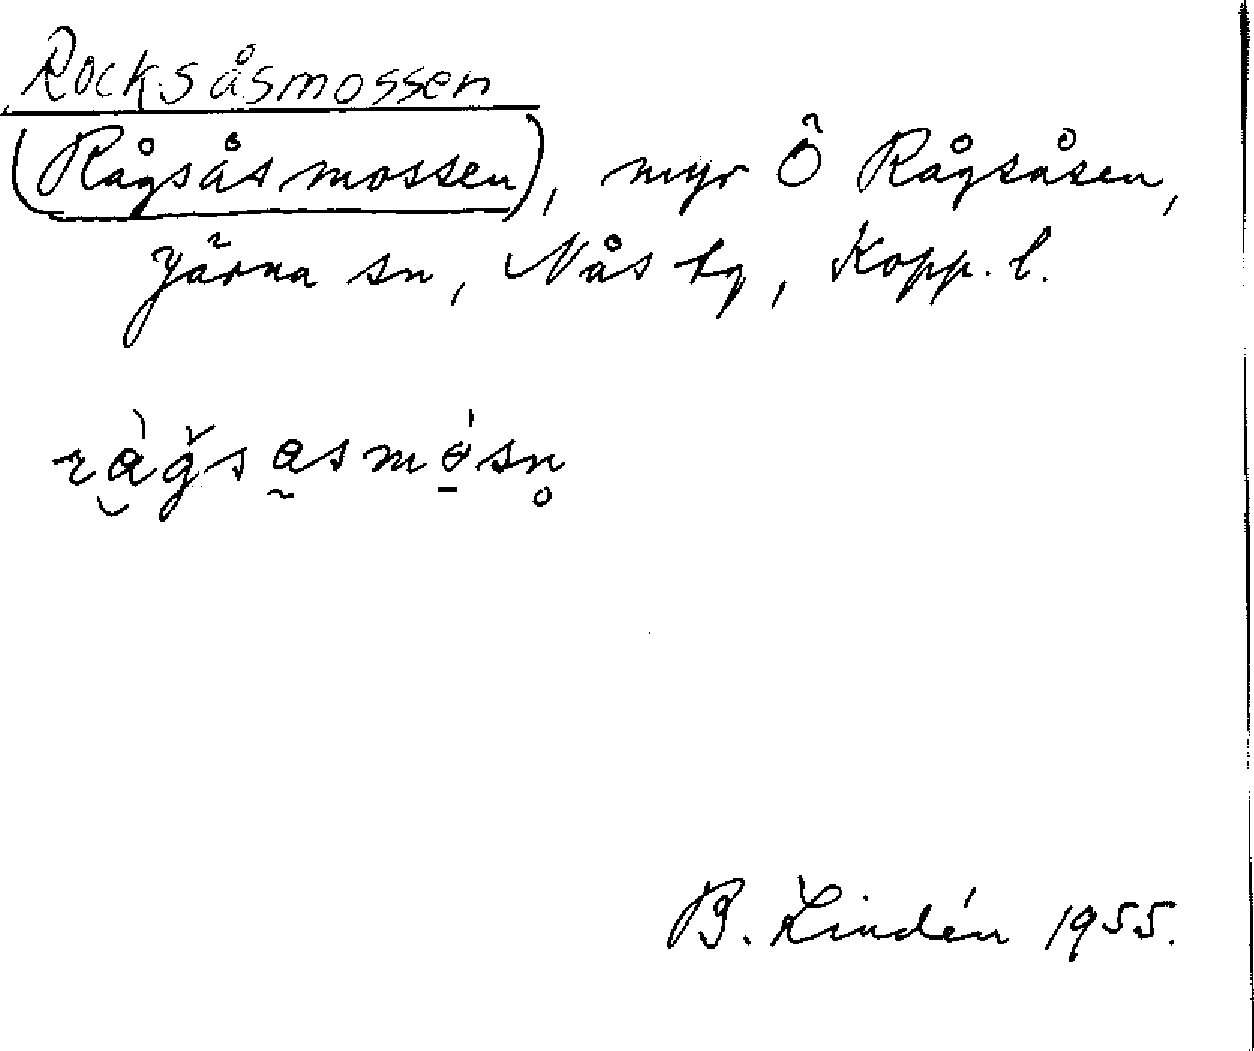 Rocksåsmossen
(Rågsåsmossen), myr Ö Rågsåsen,
Järna sn, Nås tg, Kopp. l.
B. Lindén 1955.